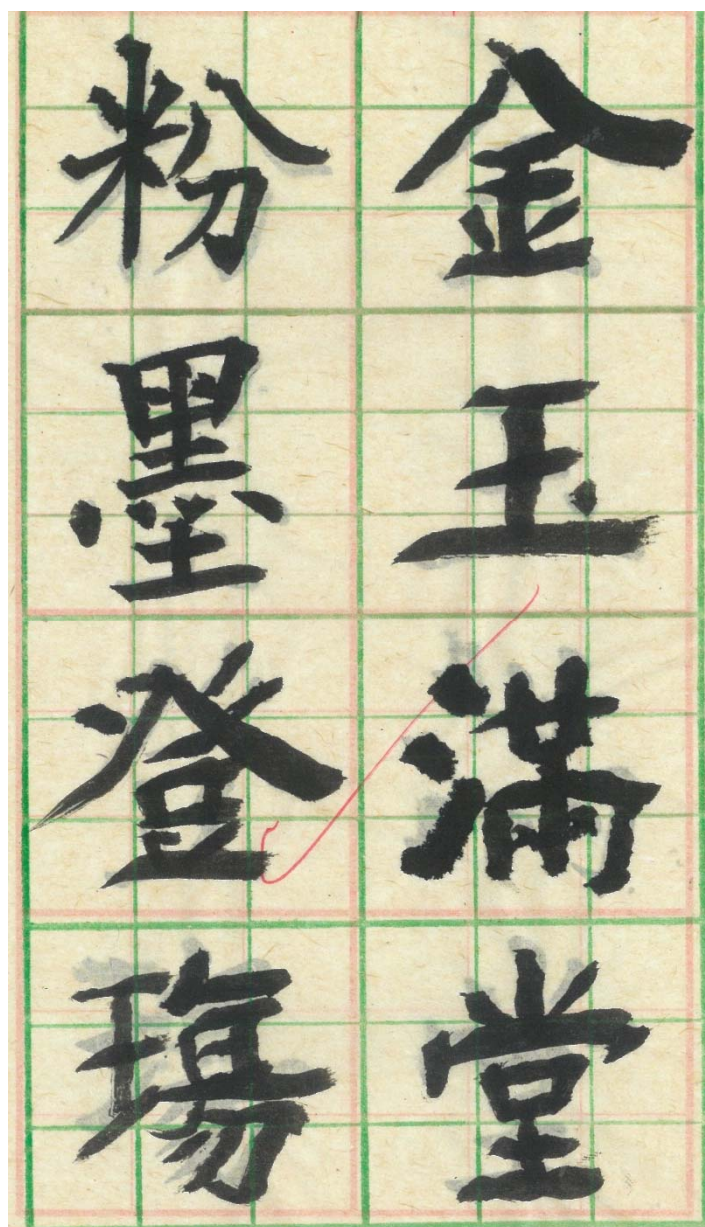 金玉滿堂
粉墨登場